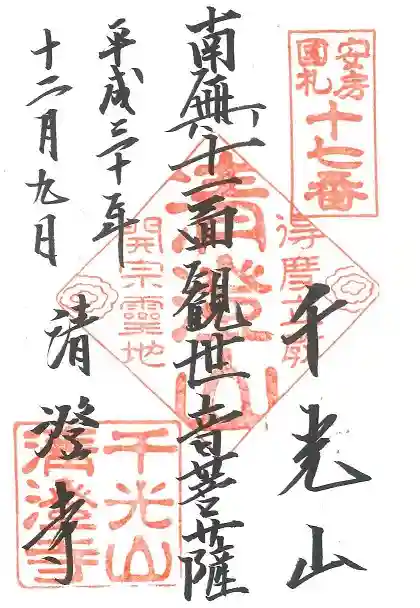 安房
國札
十七番
千光山
南無十一面観世音菩薩
平成三十年
十二月九日
清澄寺
清澄山
得度立教
開宗靈地
千光山
清澄寺